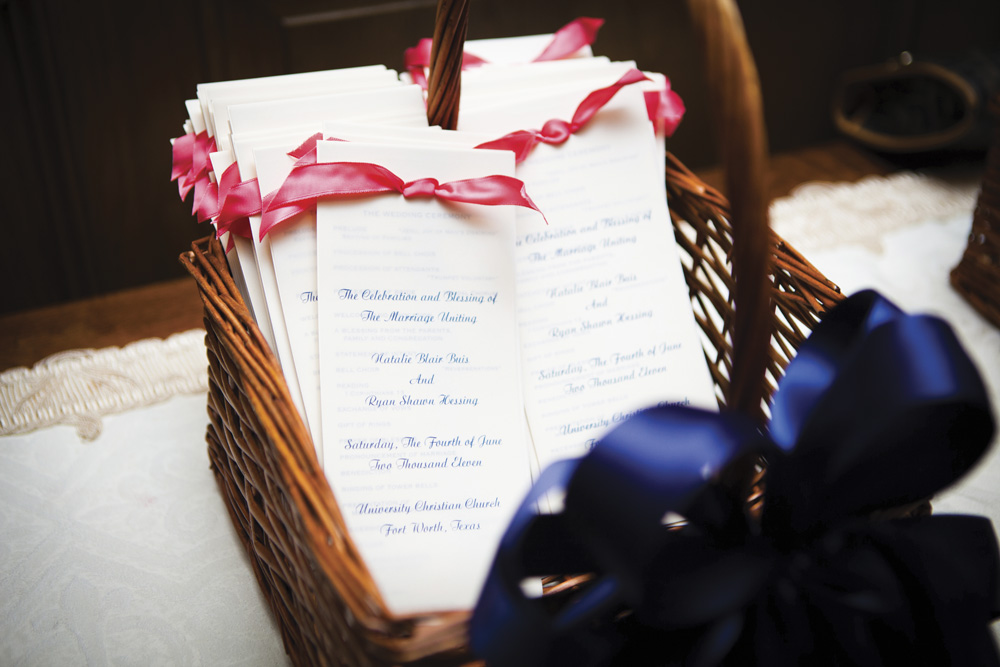 The Celebration and Blessing of
The Marriage Uniting
Natalie Blair Bais
And
Ryan Shawn Hessing
Saturday, The Fourth of June
Two Thousand Eleven
University Christian Church
Fort Worth, Texas
The
Celebration and Blessing of
The Marriage Uniting
Natalie Blair Bais
And
Ryan Shawn Hessing
Saturday, The Fourth of June
Two Thousand Eleven
University Christian Church